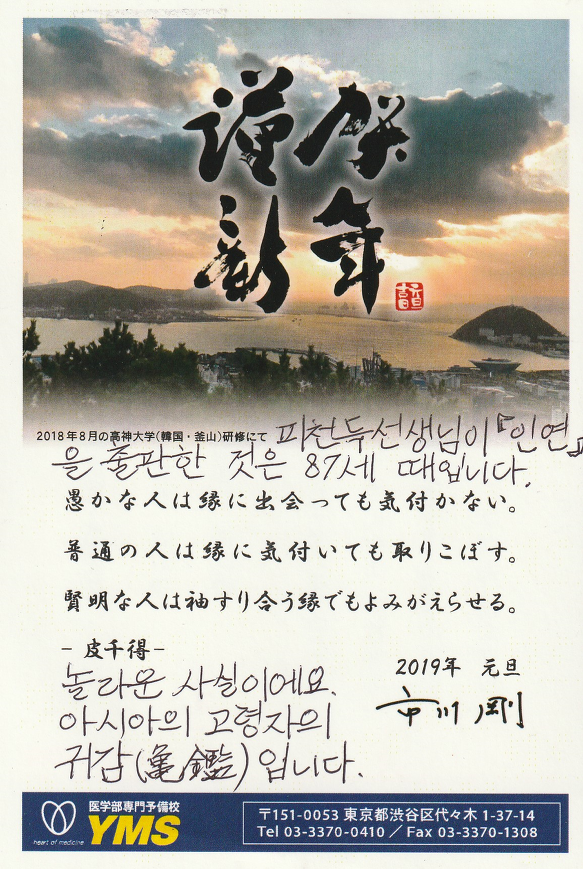 謹賀
新年
元旦
2018年8月の高神大学(韓国・釜山)研修にて
피천득선생님이『인연』
을 출판한 것은 87세 때입니다.
愚かな人は縁に出会っても気付かない。
普通の人は縁に気付いても取りこぼす。
賢明な人は袖すり合う縁でもよみがえらせる。
-皮千得-
놀라운 사실이에요.
아시아의 고령자의
귀감(亀鑑)입니다.
2019年 元旦
市川 剛
heart of medicine
医学部専門予備校
YMS
〒151-0053 東京都渋谷区代々木 1-37-14
Tel 03-3370-0410 / Fax 03-3370-1308